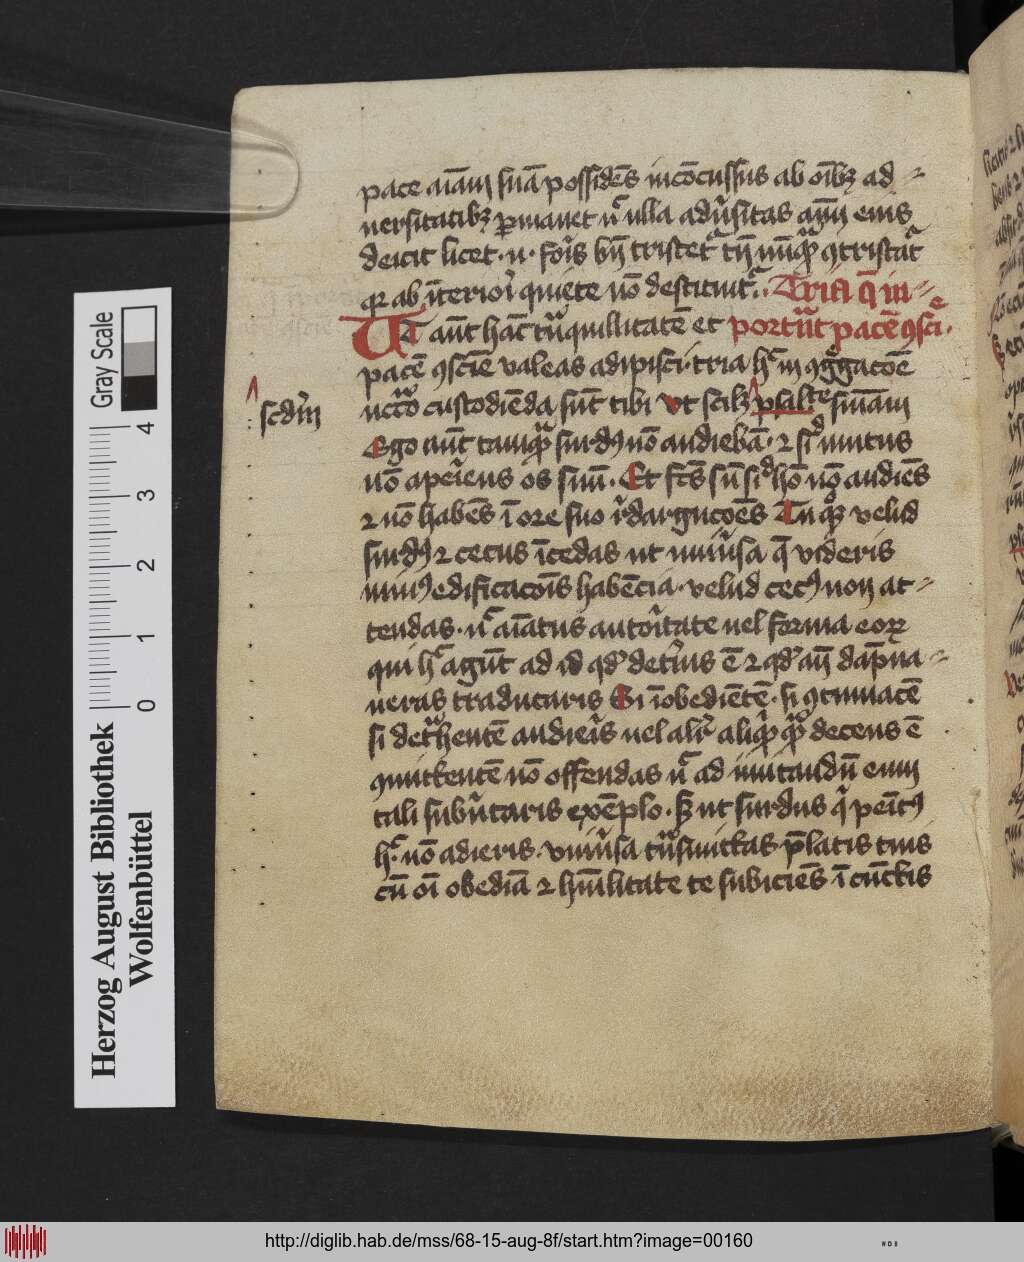 pace aīam suā possidēs incōcussus ab oībꝫ ad⸗
uersitatibꝫ ꝑmanet nͨ ulla adūsitas aīm eius
deicit licet ·n· foīs bn̄ tristetᷣ tn̄ nūqᷓ ꝯtristatᷣ
qꝛ ab īteriori quiete nō destituitᷣ. Tria q̄ in⸗
Ut aūt hāc trāquillitatē et portāt pacē ꝯsciē.
pacē ꝯsciē valeas adipisci· tria hͨ in ꝯgͣgacōe
secdm̄
necͦo custodiēda sūt tibi vt scilꝫ psalⸯte smām
Ego aūt tamqᷓ surdꝯ nō audiebā· ⁊ sicͨ mutus
nō aperiens os suū. Et fcs̄ sū sicͨ hō nō audiēs
⁊ nō habēs ī ore suo redargucōes Tu qꝫ velud
surdꝯ ⁊ cecus īcedas ut uniūsa q̄ videris
minꝯ edificacōis habēcia· velud cecꝯ non at⸗
tendas· nͨ aīatus autoritate uel forma eoꝝ
qui hͨ agūt ad id qdͦ detius ē ⁊ qdͦ aū dāpna⸗
ueras traducaris Si īobediētē· si ꝯtumacē
si detᷓhentē audieīs uel alitͬ aliqͥd qͣ decens ē
ꝯmittentē nō offendas nͨ ad imitandū eum
tali subūtaris exēplo· sꝫ ut surdus qͥ penitꝯ
hͨ· nō adieris· vniūsa tn̄ suittas p̄latis tuis
cū oī obediā ⁊ hūilitate te subiciēs ī cūctis
Gray Scale
0 1 2 3 4
Herzog August Bibliothek
Wolfenbüttel
http://diglib.hab.de/mss/68-15-aug-8f/start.htm?image=00160